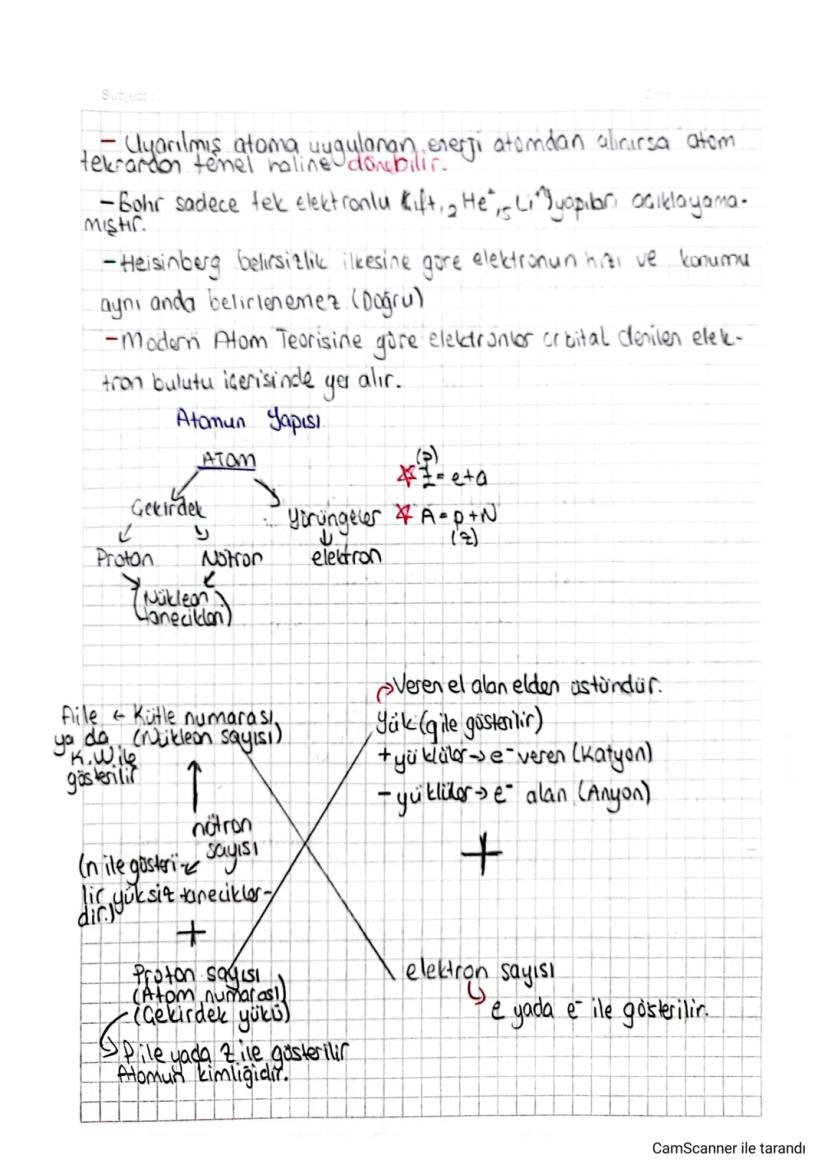 Subject:
Date
- Uyarılmış atoma uygulanan enerji atomdan alınırsa atom
tekrardan temel haline dönebilir.
- Bohr sadece tek elektronlu ₂He⁺, ₅Li yapıları açıklayama-
mıştır.
- Heisinberg belirsizlik ilkesine göre elektronun hızı ve konumu
aynı anda belirlenemez (Doğru)
- Modern Atom Teorisine göre elektronlar orbital denilen elek-
tron bulutu içerisinde yer alır.
Atomun Yapısı
ATOM
Çekirdek
Yörüngeler
Proton
Nötron
elektron
(Nükleon
tanecikleri)
(p)
Z = e+q
A = p+N
(z)
Veren el alan elden üstündür.
Yük (q ile gösterilir)
+ yüklüler → e⁻ veren (Katyon)
- yüklüler → e⁻ alan (Anyon)
+
Aile ← Kütle numarası,
ya da (Nükleon sayısı)
K.W ile
gösterilir
nötron
sayısı
(n ile gösteri-
lir yüksüz tanecikler-
dir.)
+
Proton sayısı
(Atom numarası)
(Çekirdek yükü)
P ile yada Z ile gösterilir
Atomun kimliğidir.
elektron sayısı
e yada e⁻ ile gösterilir.
CamScanner ile tarandı